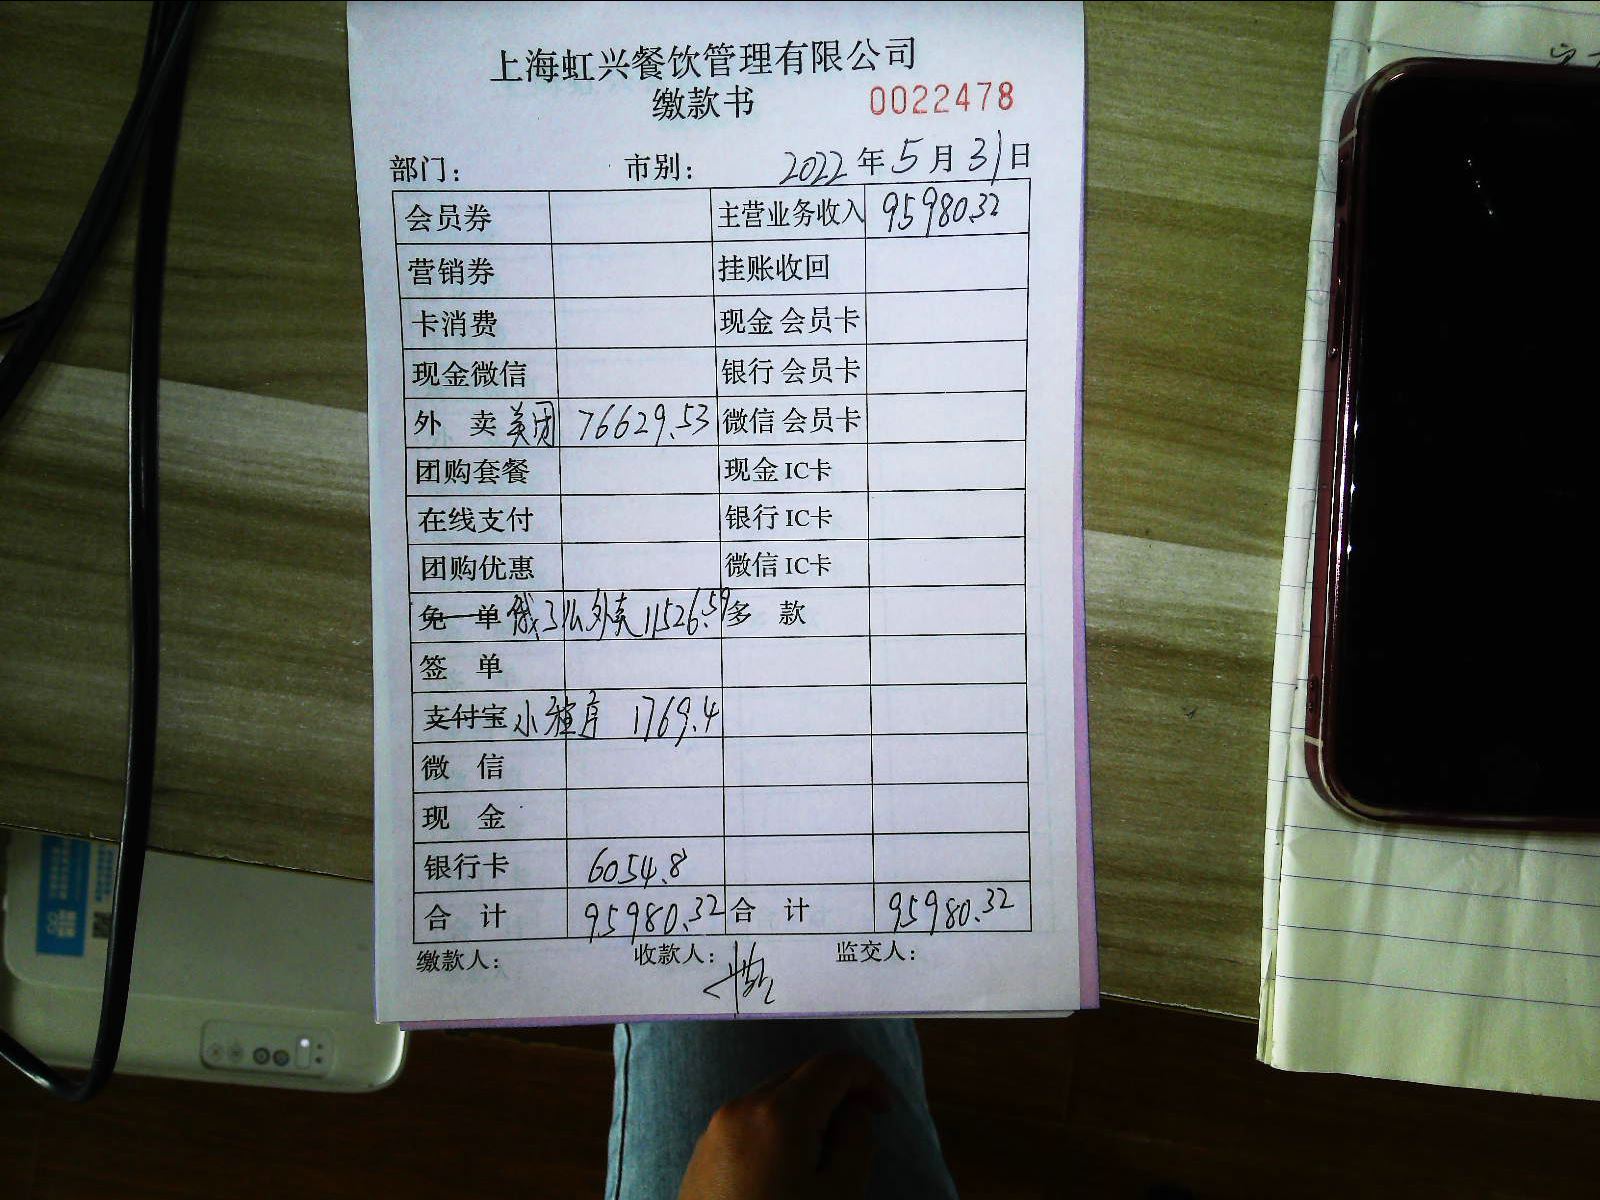 上海虹兴餐饮管理有限公司
缴款书 0022478
部门: 市别: 2022年5月31日
会员券 主营业务收入 95980.32
营销券 挂账收回
卡消费 现金 会员卡
现金微信 银行 会员卡
外 卖 美团 76629.53 微信 会员卡
团购套餐 现金 IC卡
在线支付 银行 IC卡
团购优惠 微信 IC卡
免 单 饿了么外卖 11526.59 多 款
签 单
支付宝 小程序 1769.4
微 信
现 金
银行卡 6054.8
合 计 95980.32 合 计 95980.32
缴款人: 收款人: 监交人: